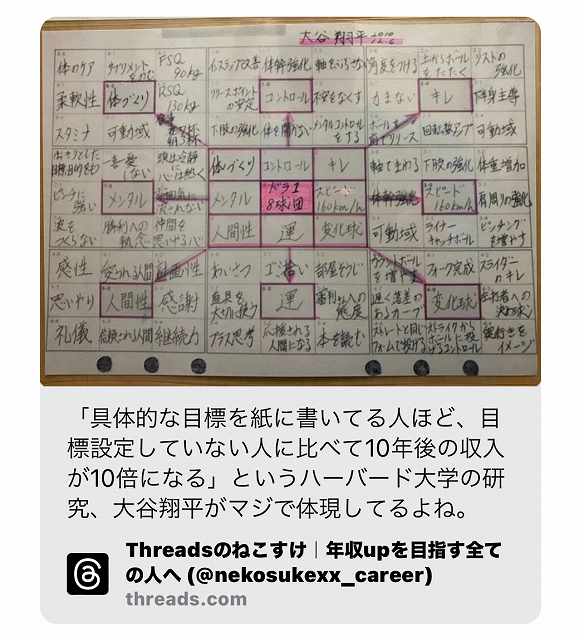 大谷 翔平
体のケア サプリメントをのむ FSQ 90kg インステップ改善 体幹強化 軸をぶらさない 角度をつける 上からボールをたたく リストの強化
柔軟性 体づくり RSQ 130kg リリースポイントの安定 コントロール 不安をなくす 力まない キレ 下半身主導
スタミナ 可動域 下肢の強化 体を開かない メンタルコントロールをする ボールを前でリリース 回転数アップ 可動域
はっきりとした目標、目的をもつ 一喜一憂しない 頭は冷静に心は熱く 体づくり コントロール キレ 軸でまわる 下肢の強化 体重増加
ピンチに強い メンタル 雰囲気に流されない メンタル ドラ1 8球団 スピード160km/h 体幹強化 スピード160km/h 肩周りの強化
波をつくらない 勝利への執念 仲間を思いやる心 人間性 運 変化球 可動域 ライナーキャッチボール ピッチングを増やす
感性 愛される人間 計画性 あいさつ ゴミ拾い 部屋そうじ カウントボールを増やす フォーク完成 スライダーのキレ
思いやり 人間性 感謝 道具を大切に使う 運 審判さんへの態度 遅く落差のあるカーブ 変化球 左打者への決め球
礼儀 信頼される人間 継続力 プラス思考 応援される人間になる 本を読む ストレートと同じフォームで投げる ストライクからボールに投げるコントロール 奥行きをイメージ
「具体的な目標を紙に書いてる人ほど、目
標設定していない人に比べて10年後の収入
が10倍になる」というハーバード大学の研
究、大谷翔平がマジで体現してるよね。
Threadsのねこすけ｜年収upを目指す全て
の人へ (@nekosukexx_career)
threads.com